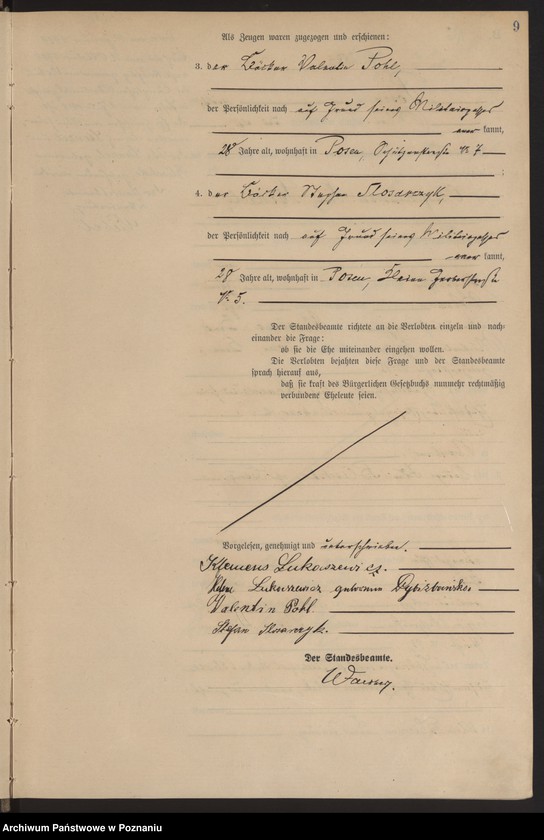 9
Als Zeugen waren zugezogen und erschienen:
3. der Bäcker Valentin Pohl,
der Persönlichkeit nach auf Grund seines Militairpasses
kannt,
28 Jahre alt, wohnhaft in Posen, Schützenstraße № 7
;
4. der Bäcker Stephan Slosarczyk,
der Persönlichkeit nach auf Grund seines Militairpasses
kannt,
28 Jahre alt, wohnhaft in Posen, Kleine Gerberstraße
№ 5.
Der Standesbeamte richtete an die Verlobten einzeln und nach-
einander die Frage:
ob sie die Ehe miteinander eingehen wollen.
Die Verlobten bejahten diese Frage und der Standesbeamte
sprach hierauf aus,
daß sie kraft des Bürgerlichen Gesetzbuchs nunmehr rechtmäßig
verbundene Eheleute seien.
Vorgelesen, genehmigt und unterschrieben.
Klemens Lukaszewicz.
Lukaszewicz geborene
Valentin Pohl.
Stefan Slosarczyk.
Der Standesbeamte.
Archiwum Państwowe w Poznaniu